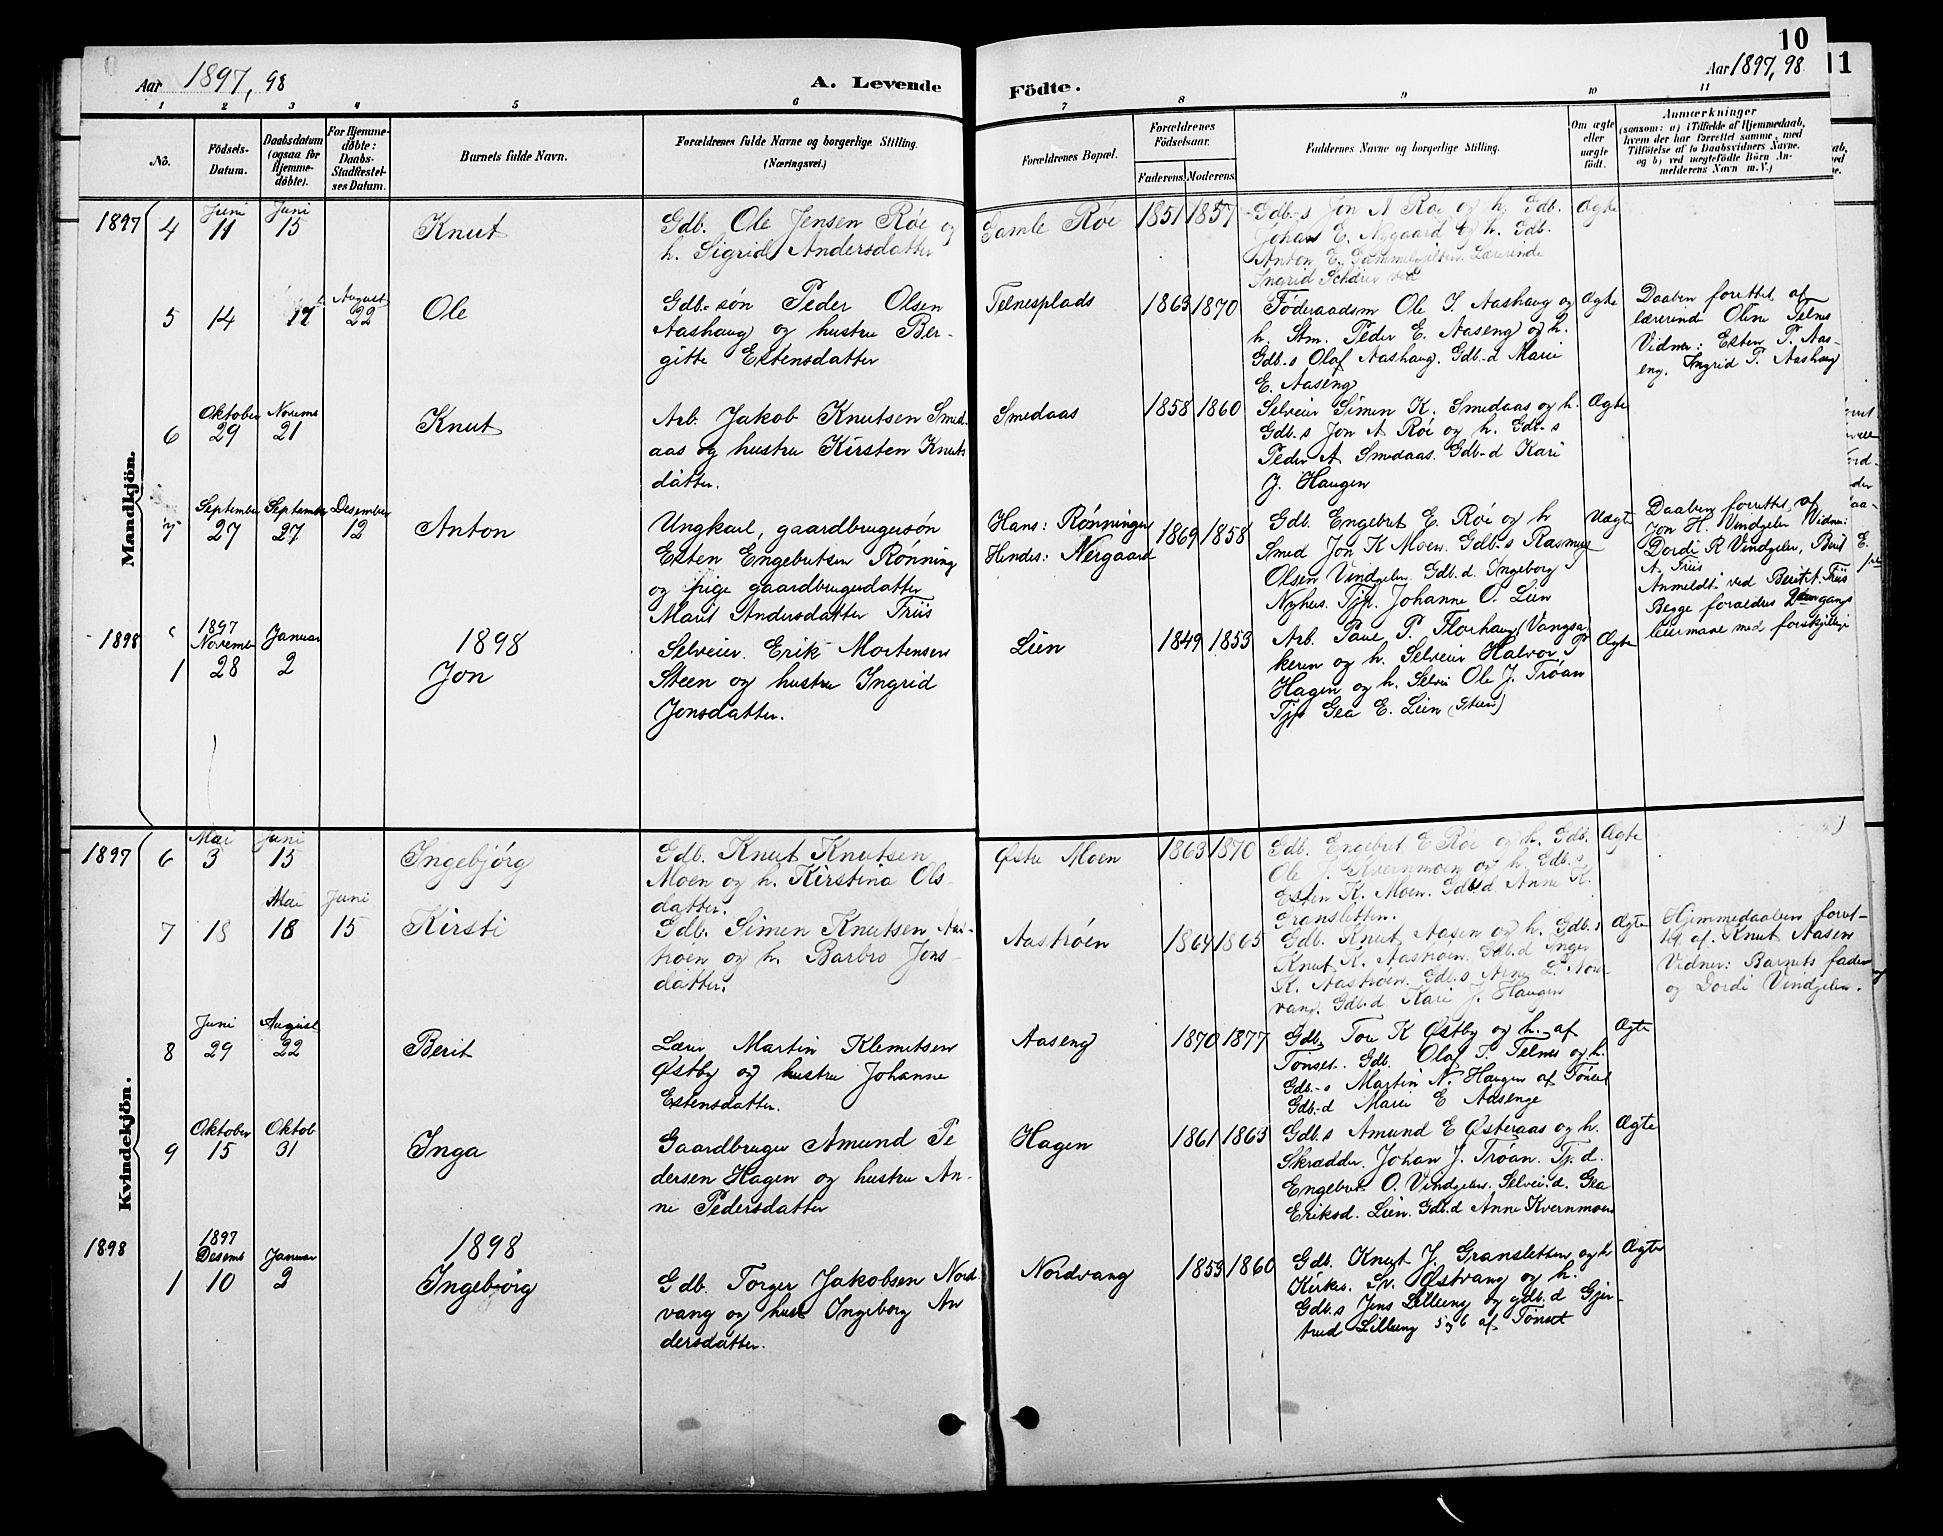 10
Aar 1897, 98
A. Levende
Födte.
Aar 1897, 98
11
1 2 3 4 5 6 7 8 9 10 11
No.
Födsels-
Datum.
Daabsdatum
(ogsaa for
Hjemme-
døbte).
For Hjemme-
døbte:
Daabs-
Stadfæstel-
ses Datum.
Barnets fulde Navn.
Forældrenes fulde Navne og borgerlige Stilling.
(Næringsvei.)
Forældrenes Bopæl.
Forældrenes
Födselsaar.
Faderens. Moderens.
Faddernes Navne og borgerlige Stilling.
Om ægte
eller
uægte
født.
Anmærkninger
(saasom: a) i Tilfælde af Hjemmedaab,
hvem der har forrettet samme, med
Tilföielse af to Daabsvidners Navne.
og b) ved uægtefödte Börn An-
melderens Navn m. V.)
Mandkjön.
1897
4
Juni
11
Juni
15
Knut
Gdb. Ole Jensen Røe og
h. Sigrid Andersdatter
Gamle Røe
1851 1857
Gdb.-s Jon A Røe og h. Gdb.
Johan E. Nygaard og h. Gdb.
Anton E. Lærerinde
Ingrid
Ægte
5
14
17
August
22
Ole
Gdb.-søn Peder Olsen
Aashaug og hustru Ber-
gitte Estensdatter
Telnesplads
1863 1870
Føderaadsm Ole J. Aashaug og
h. Stm. Peder E. Aaseng og h.
Gdb-s Olaf Aashaug. Gdb-d Marie
E. Aaseng
Ægte
Daaben forettet af
lærerinde Oline Telnes
Vidner: Esten P. Aas-
eng, Ingrid P. Aashaug
6
Oktober
29
Novemb
21
Knut
Arb. Jakob Knutsen Smed-
aas og hustru Kirsten Knuts
datter.
Smedaas
1858 1860
Selveier Simen K. Smedaas og h.
Gdb.s Jon A Røe og h. Gdb-s
Peder A Smedaas. Gdb-d Kari
J. Haugen
Ægte
7
September
27
September
27
Desember
12
Anton
Ungkarl, gaardbrugersøn
Esten Engebretsen Rønning
og pige gaardbrugerdatter
Marit Andersdatter Friis
Hans: Rønningen
Hendes: Nergaard
1869 1858
Gdb. Engebret E. Røe og h
Smed Jon K Moen. Gdb-s Rasmus
Olsen Vindgelen Gdb.d. Ingeborg
Nyhus. Tjp. Johanne O. Lien
Uægte
Daaben forettet af
Jon H. Vindgelen Vidner:
Dordi R Vindgelen, Berit
A. Friis
Anmeldt ved Berit A. Friis
Begge foraldres 2den gangs
leiermaal med forskjellige
1898
1
1897
November
28
Januar
2
1898
Jon
Selveier Erik Mortensen
Steen og hustru Ingrid
Jonsdatter.
Lien
1849 1853
Arb. Paul P. Florhaug (Vangsa
keren og h. Selveier Halvor P
Hagen og h. Selvei Ole J. Trøan
Tjp Gea E. Lien (Steen)
Ægte
Kvindekjön.
1897
6
Mai
3
Juni
15
Ingebjørg
Gdb. Knut Knutsen
Moen og h. Kirstina Ols
datter.
Østre Moen
1863 1870
Gdb. Engebret E Røe og h. Gdb.
Ole J. Kvernmoen og h. Gdb.s
Esten K. Moen. Gdb.d Anne K.
Gransletten.
Ægte
7
18
Mai
18
Juni
15
Kirsti
Gdb. Simen Knutsen Aas-
trøen og h. Barbro Jons-
datter.
Aastrøen
1864 1865
Gdb. Knut Aasen og h. Gdb.s
Knut K. Aastrøen. Gdb.d Inger
K. Aastrøen. Gdb.s Arne L. Nor
vang. Gdb.d Kari J. Haugen
Ægte
Hjemmedaaben forret-
tet af Knut Aasen
Vidner: Barnets fader
og Dordi Vindgelen.
8
Juni
29
August
22
Berit
Lærer Martin Klemetsen
Østby og hustru Johanne
Estensdatter.
Aaseng
1870 1877
Gdb. Tore K Østby og h. af
Tønset. Gdb. Olaf T. Telnes og h.
Gdb.-s Martin N. Haugen af Tønset
Gdb-d Marie E Aasenge
Ægte
9
Oktober
15
Oktob
31
Inga
Gaardbruger Amund Pe
dersen Hagen og hustru An-
ne Pedersdatter
Hagen
1861 1863
Gdb.s Amund E Østeraas og h.
Skrædder. Johan J. Trøan. Tj. d.
Engebret O. Vindgelen. Selvei.d. Gea
Eriksd. Lien. Gdb.d Anne Kvernmoen
Ægte
1898
1
1897
Desemb
10
Januar
2
1898
Ingebjørg
Gdb. Torger Jakobsen Nord
vang og hust Ingeborg An
dersdatter.
Nordvang
1859 1860
Gdb. Knut J. Gransletten og h
Kirkes. Østvang og h.
Gdb.s Jens Lilleeng og gdb.d Gjer-
trud Lilleeng 5 og 6 af Tønset
Ægte